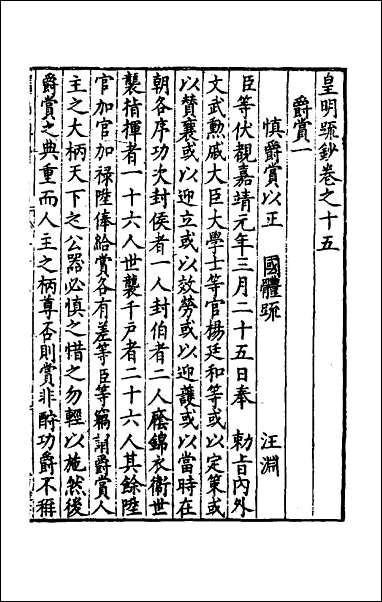 皇明疏鈔卷之十五
爵賞一
慎爵賞以正　國體疏　汪淵
臣等伏覩嘉靖元年三月二十五日奉　勅旨內外
文武勲戚大臣大學士等官楊廷和等或以定策或
以贊襄或以迎立或以效勞或以迎護或以當時在
朝各序功次封侯者一人封伯者二人廕錦衣衞世
襲指揮者一十六人世襲千戶者二十六人其餘陞
官加官加祿陞俸給賞各有差等臣等竊謂爵賞人
主之大柄天下之公器必慎之惜之勿輕以施然後
爵賞之典重而人主之柄尊否則賞非酧功爵不稱